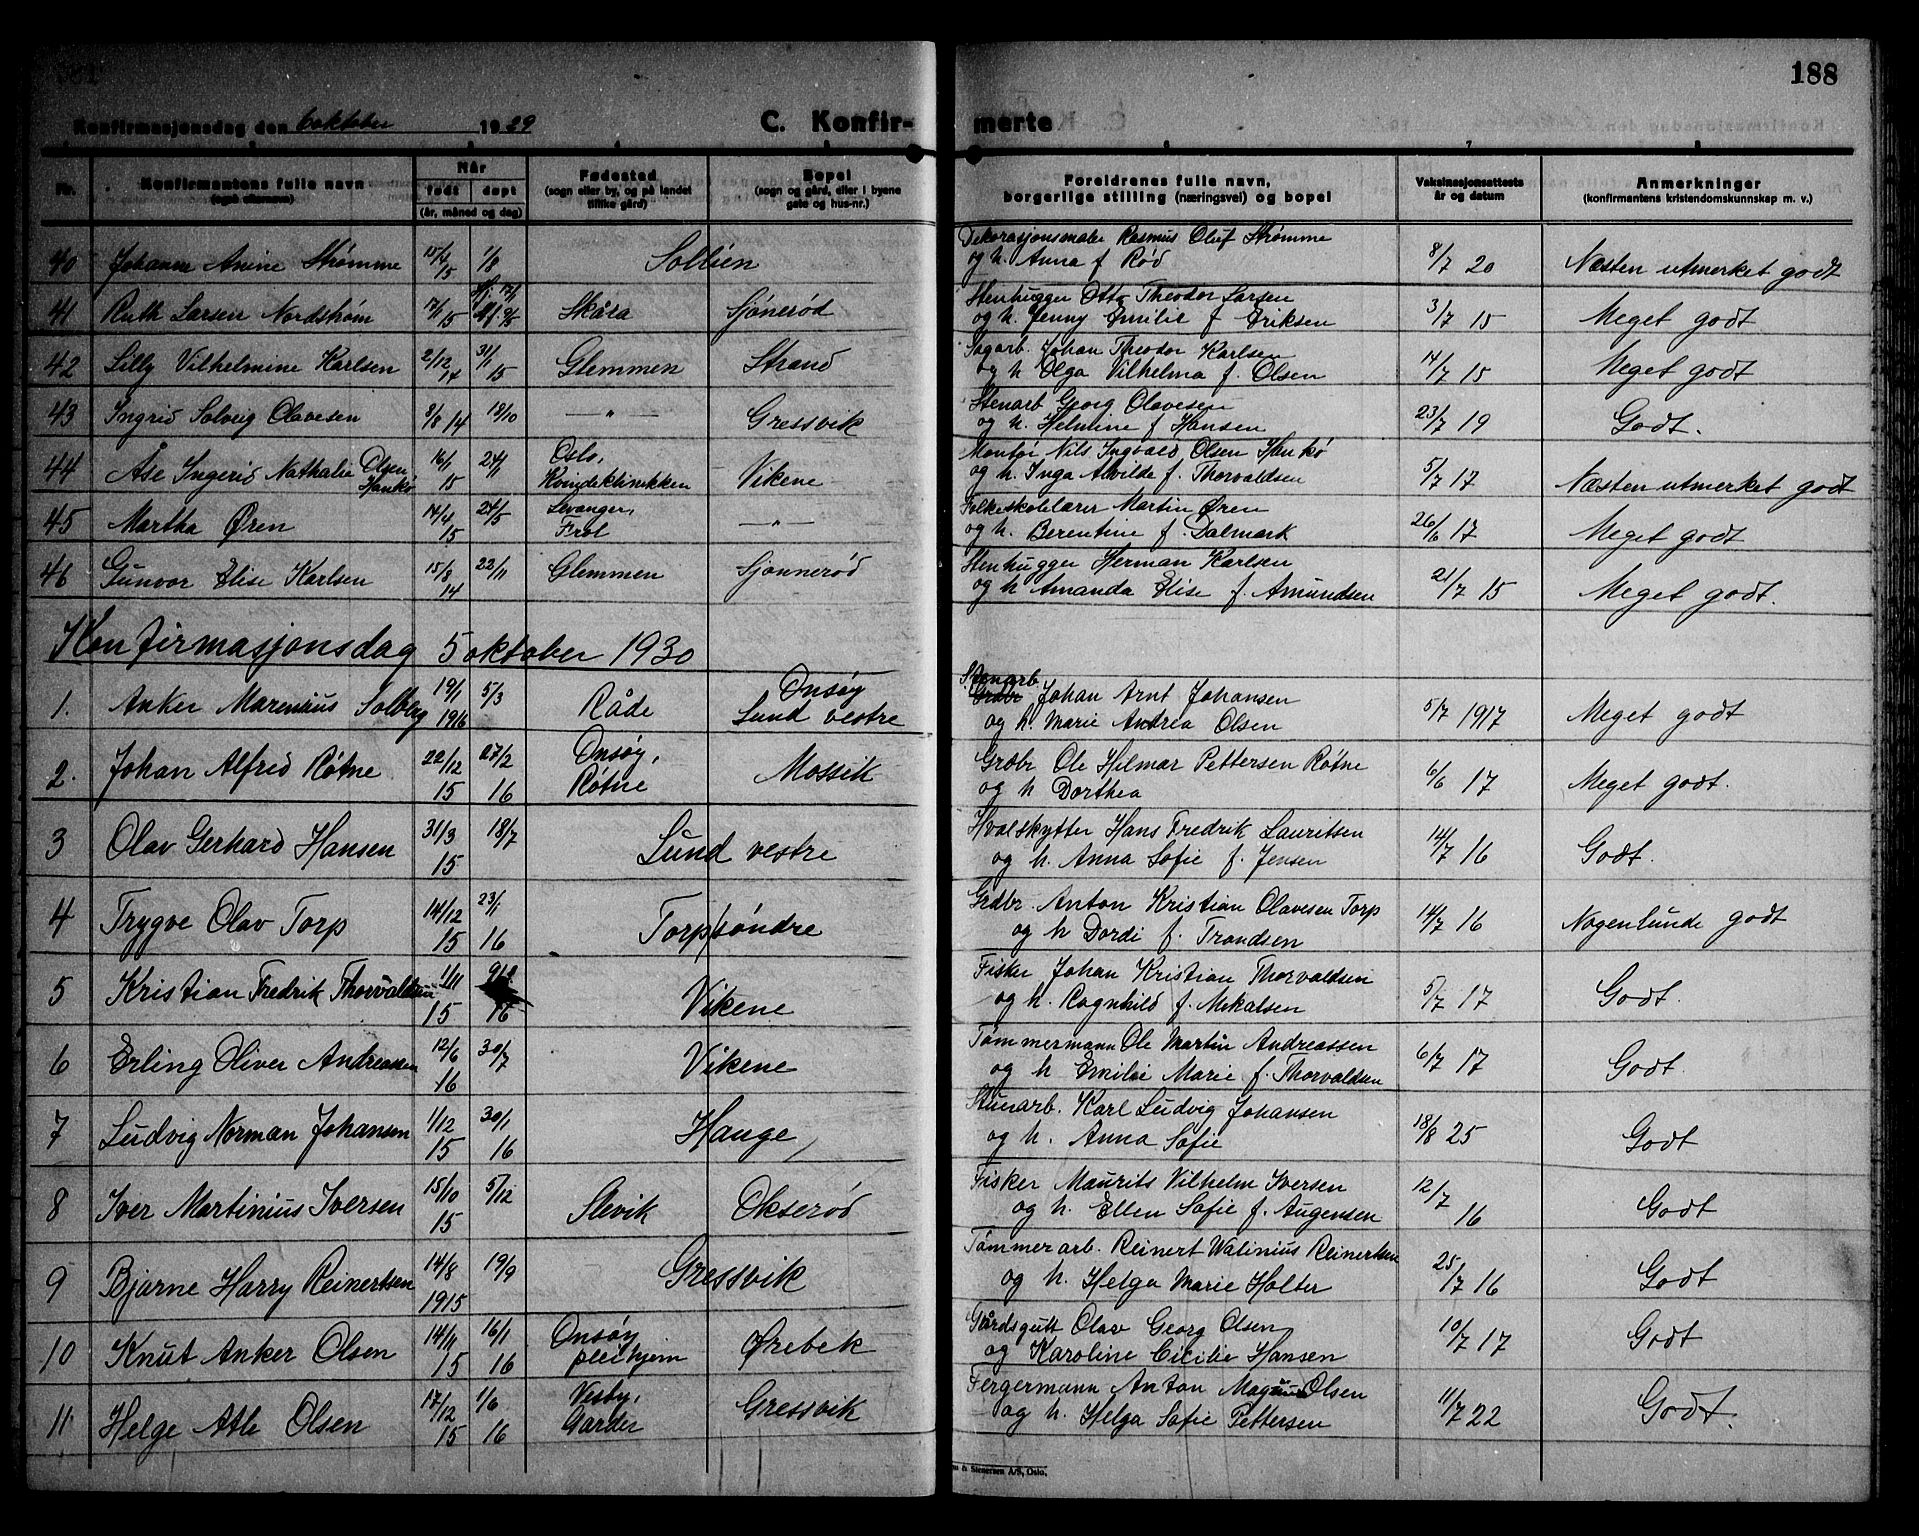 188
Konfirmasjonsdag den 6 oktober 1929 C. Konfirmerte
Nr. Konfirmantens fulle navn (også etternavn) Når født døpt (år, måned og dag) Fødested (sogn eller by, og på landet tillike gård) Bopel (sogn og gård, eller i byene gate og hus-nr.) Foreldrenes fulle navn, borgerlige stilling (næringsvei) og bopel Vaksinasjonsattests år og datum Anmerkninger (konfirmantens kristendomskunnskap m. v.)
40 Johanna Anine Strømme 15/6 15 1/8 Solbien Dekorasjonsmaler Rasmus Oluf Strømme
og h. Anna f Rød 8/7 20 Næsten utmerket godt
41 Ruth Larsen Nordstrøm 17/1 15 Skåra Sjønerød Stenhugger Otto Theodor Larsen
og h. Jenny Emilie f Eriksen 3/7 15 Meget godt
42 Lilly Vilhelmine Karlsen 2/12 14 31/1 15 Glemmen Strand Sagarb. Johan Theodor Karlsen
og h Olga Vilhelma f. Olsen 14/7 15 Meget godt
43 Ingrid Solveig Olavesen 8/8 14 18/10 — " — Gressvik Stenarb Georg Olavesen
og h. Helmine f Hansen 23/7 19 Godt.
44 Åse Ingerid Nathalie Olsen Hankø 16/1 15 24/1 Oslo, Kvindeklinikken Vikene Montør Nils Ingvald Olsen Hankø
og h. Inga Alvilde f. Thorvaldsen 5/7 17 Næsten utmerket godt
45 Martha Øren 14/4 15 24/5 Levanger, Frol — " — Folkeskolelærer Martin Øren
og h. Berentine f. Dalmark 26/6 17 Meget godt
46 Gunvor Elise Karlsen 15/8 14 22/11 Glemmen Sjønnerød Stenhugger Herman Karlsen
og h Amanda Elise f. Amundsen 21/7 15 Meget godt.
Konfirmasjonsdag 5 oktober 1930
1. Anker Marenius Solberg 19/1 1916 5/3 Råde Onsøy Lund vestre Stenarb Grdbr Johan Arnt Johansen
og h. Marie Andrea Olsen 5/7 1917 Meget godt
2. Johan Alfred Røtne 22/12 15 27/2 16 Onsøy, Røtne Mossik Grdbr Ole Hilmar Pettersen Røtne
og h Dorthea 6/6 17 Meget godt.
3 Olav Gerhard Hansen 31/3 15 18/7 Lund vestre Hvalskytter Hans Fredrik Lauritsen
og h. Anna Sofie f. Jensen 14/7 16 Godt.
4 Trygve Olav Torp 14/12 15 23/1 16 Torp søndre Grdbr. Anton Kristian Olavesen Torp
og h Dordi f. Trondsen 14/7 16 Nogenlunde godt
5 Kristian Fredrik Thorvaldsen 1/11 15 16 Vikene Fisker Johan Kristian Thorvaldsen
og h. Ragnhild f. Mikalsen 5/7 17 Godt.
6 Erling Oliver Andreassen 12/6 16 30/7 Vikene Tømmermann Ole Martin Andreassen
og h Emilie Marie f. Thorvaldsen 6/7 17 Godt.
7 Ludvig Norman Johansen 1/12 15 30/1 16 Hauge, Stenarb. Karl Ludvig Johansen
og h. Anna Sofie 18/8 25 Godt
8 Iver Martinius Iversen 15/10 15 5/12 Slevik Okserød Fisker Maurits Vilhelm Iversen
og h. Ellen Sofie f. Augensen 12/7 16 Godt
9 Bjarne Harry Reinertsen 14/8 1915 19/9 Gressvik Tømmerarb. Reinert Walinius Reinertsen
og h. Helga Marie Holter 25/7 16 Godt
10 Knut Anker Olsen 14/11 15 16/1 16 Onsøy pleihjem Ørebek Gårdsgutt Olav Georg Olsen
og Karoline Cicilie Hansen 10/7 17 Godt
11 Helge Atle Olsen 17/12 15 1/6 16 Visby, Garder Gressvik Fergermann Anton Magnus Olsen
og h. Helga Sofie Pettersen 11/7 22 Godt.
& Stenersen A/S, Oslo.